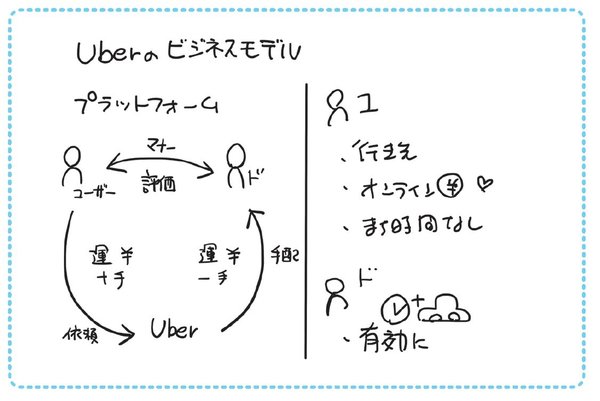 Uberのビジネスモデル
プラットフォーム
マナー
評価
ユーザー
ド
運 ¥
+手
運 ¥
ー手
手配
依頼
Uber
ユ
・行き先
・オンライン¥♡
・まち時間なし
ド
+
・有効に